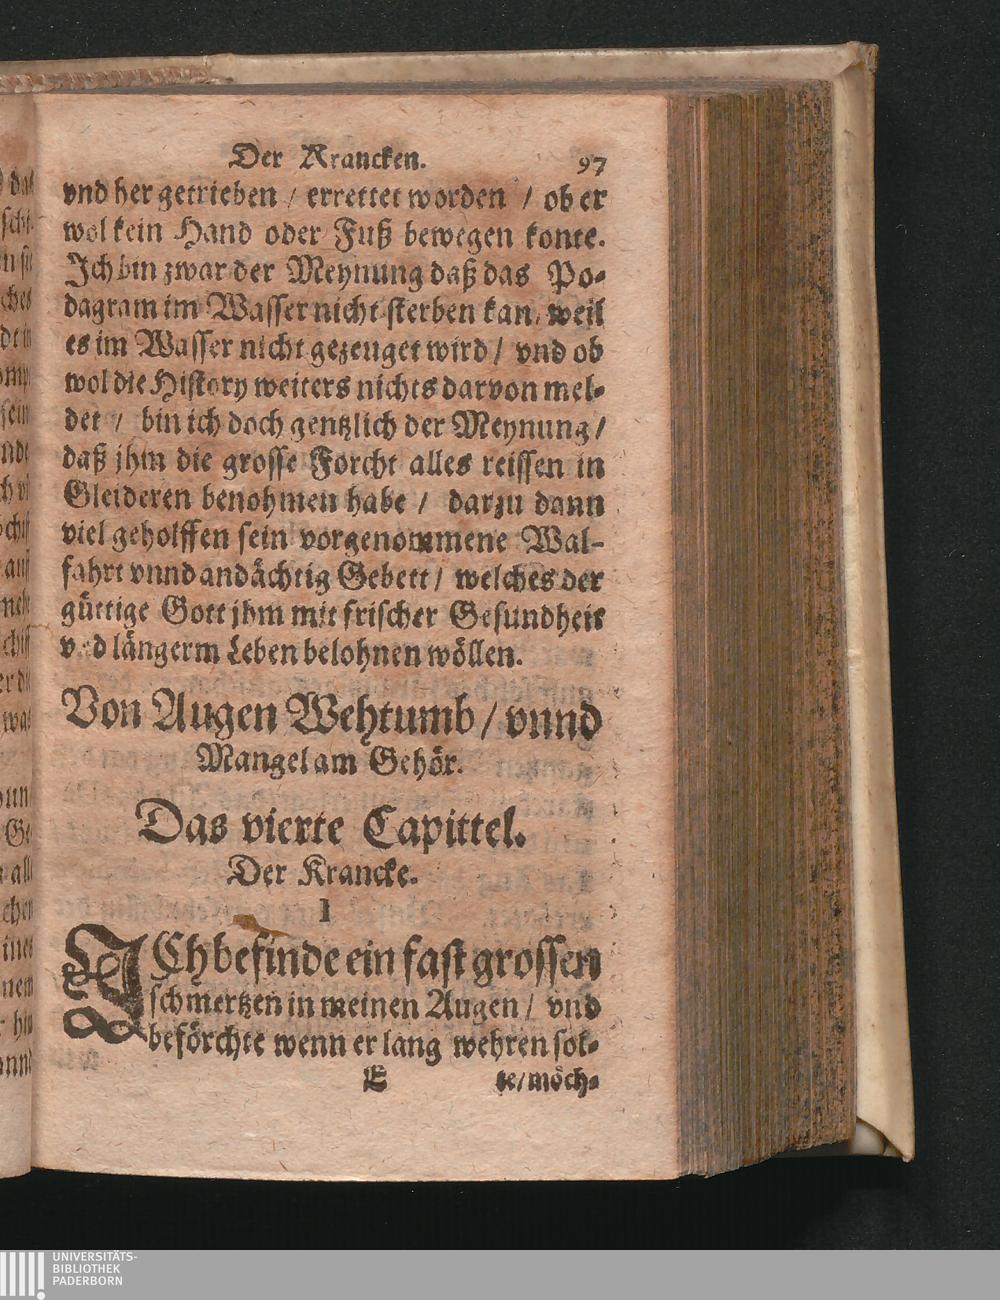 Der Krancken. 97
vnd her getrieben / errettet worden / ob er
wol kein Hand oder Fuß bewegen konte.
Ich bin zwar der Meynung daß das Po-
dagram im Wasser nicht sterben kan, weil
es im Wasser nicht gezeuget wird / vnd ob
wol die History weiters nichts darvon mel-
det / bin ich doch gentzlich der Meynung /
daß jhm die grosse Forcht alles reissen in
Gleideren benohmen habe / darzu dann
viel geholffen sein vorgenommene Wal-
fahrt vnnd andächtig Gebett / welches der
güttige Gott jhm mit frischer Gesundheit
vnd längerm Leben belohnen wöllen.
Von Augen Wehtumb / vnnd
Mangel am Gehör.
Das vierte Capittel.
Der Krancke.
1
ICh befinde ein fast grossen
schmertzen in meinen Augen / vnd
beförchte wenn er lang wehren sol-
E te / möch-
UNIVERSITÄTS-
BIBLIOTHEK
PADERBORN